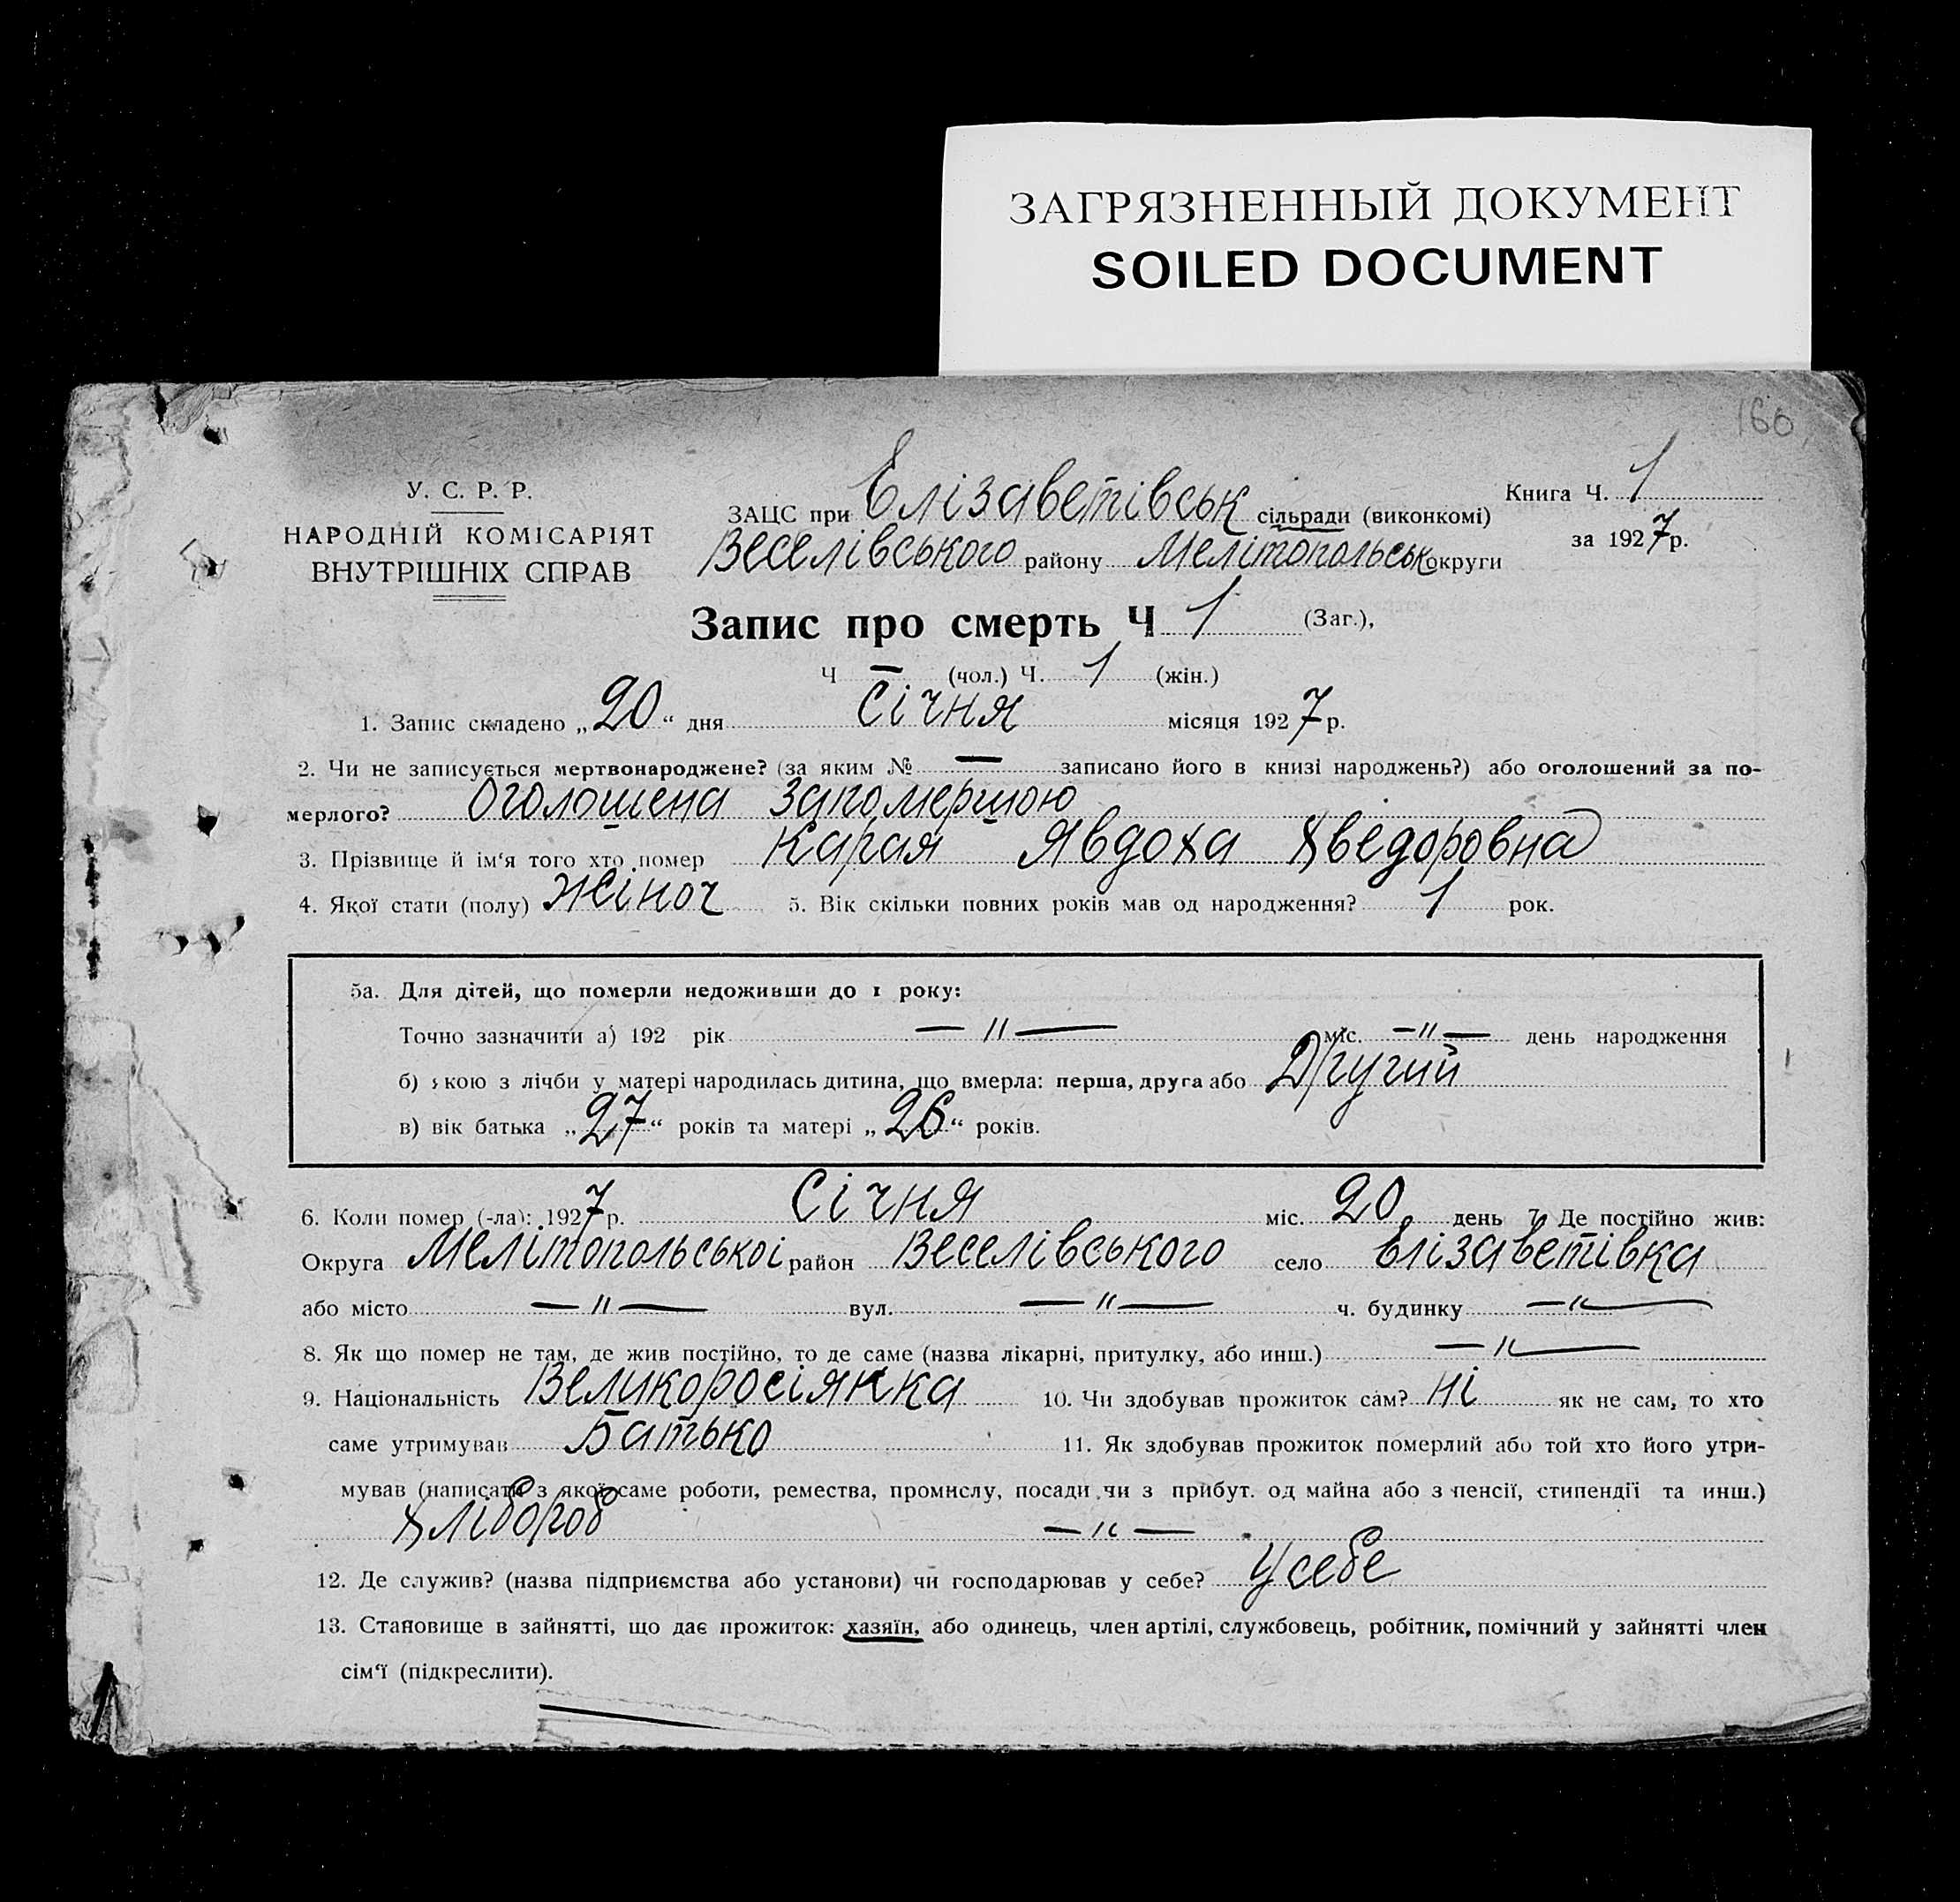 ЗАГРЯЗНЕННЫЙ ДОКУМЕНТ
SOILED DOCUMENT
160
У. С. Р. Р.
НАРОДНІЙ КОМІСАРІЯТ
ВНУТРІШНІХ СПРАВ
ЗАЦС при Елізаветівськ сільради (виконкомі)
Веселівського району Мелітопольськ округи
Книга Ч. 1
за 1927 р.
Запис про смерть Ч 1 (Заг.),
Ч — (чол.) Ч. 1 (жін.)
1. Запис складено „20“ дня Січня місяця 1927 р.
2. Чи не записується мертвонароджене? (за яким № — записано його в книзі народжень?) або оголошений за по-
мерлого? Оголошена запомершою
3. Прізвище й ім‘я того хто помер Карая Явдоха Хведоровна
4. Якої стати (полу) жіноч 5. Вік скільки повних років мав од народження? 1 рок.
5а. Для дітей, що померли недоживши до 1 року:
Точно зазначити а) 192 рік — " — міс. — " — день народження
б) якою з лічби у матері народилась дитина, що вмерла: перша, друга або Другий
в) вік батька „27“ років та матері „26“ років.
6. Коли помер (-ла): 1927 р. Січня міс. 20 день 7. Де постійно жив:
Округа Мелітопольської район Веселівського село Елізаветівка
або місто — " — вул. — " — ч. будинку — " —
8. Як що помер не там, де жив постійно, то де саме (назва лікарні, притулку, або инш.) — " —
9. Національність Великоросіянка 10. Чи здобував прожиток сам? ні як не сам, то хто
саме утримував Батько 11. Як здобував прожиток померлий або той хто його утри-
мував (написати з якої саме роботи, ремества, промислу, посади чи з прибут. од майна або з пенсії, стипендії та инш.)
Хлібороб — " —
12. Де служив? (назва підприємства або установи) чи господарював у себе? У себе
13. Становище в зайнятті, що дає прожиток: хазяїн, або одинець, член артілі, службовець, робітник, помічний у зайнятті член
сім‘ї (підкреслити).